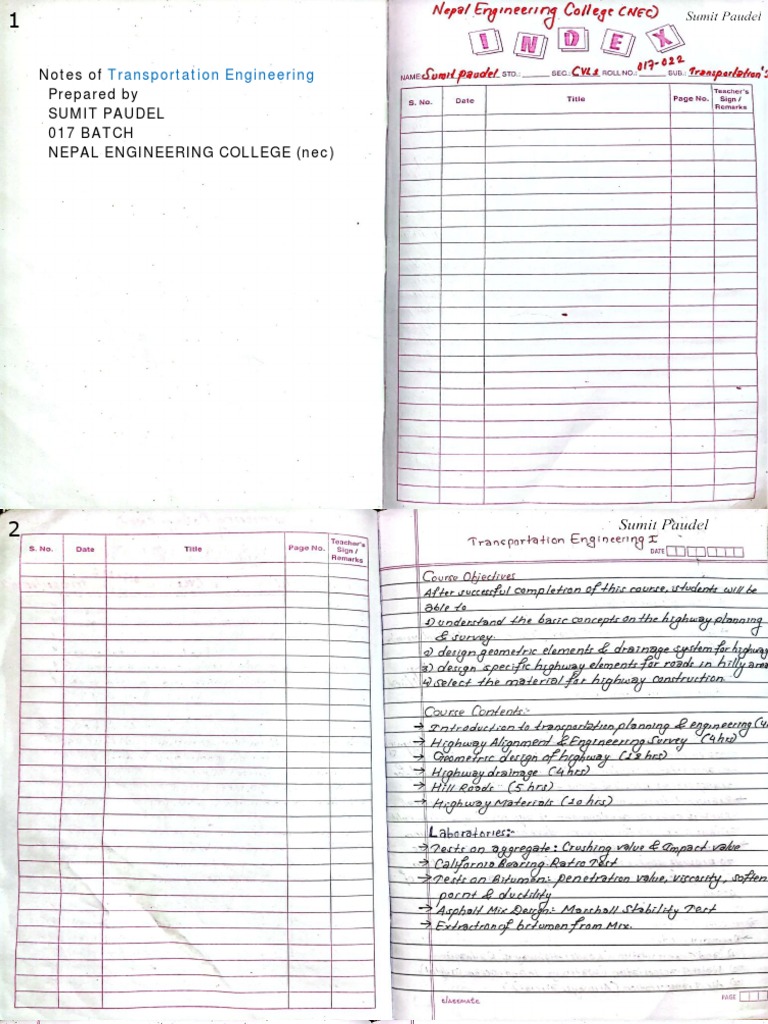 1
Notes of Transportation Engineering
Prepared by
SUMIT PAUDEL
017 BATCH
NEPAL ENGINEERING COLLEGE (nec)
Nepal Engineering College (NEC)
Sumit Paudel
INDEX
NAME: Sumit paudel STD.: SEC.: CVL1 ROLL NO.: 017-022 SUB.: Transportation's
S. No. Date Title Page No. Teacher's Sign / Remarks
2
S. No. Date Title Page No. Teacher's Sign / Remarks
Sumit Paudel
Transportation Engineering I
DATE
Course Objectives
After successful completion of this course, students will be
able to
1) understand the basic concepts on the highway planning
& survey
2) design geometric elements & drainage system for highway
3) design specific highway elements for roads in hilly area
4) select the material for highway construction
Course Contents:-
→ Introduction to transportation planning & engineering (4
→ Highway Alignment & Engineering Survey (4hrs)
→ Geometric design of highway (18hrs)
→ Highway drainage (4hrs)
→ Hill Roads (5 hrs)
→ Highway Materials (10 hrs)
Laboratories:-
→ Tests on aggregate: Crushing value & Impact value
→ California Bearing Ratio Test
→ Tests on Bitumen: penetration value, viscosity, soften
point & ductility
→ Asphalt Mix Design: Marshall Stability Test
→ Extraction of bitumen from Mix.
classmate
PAGE